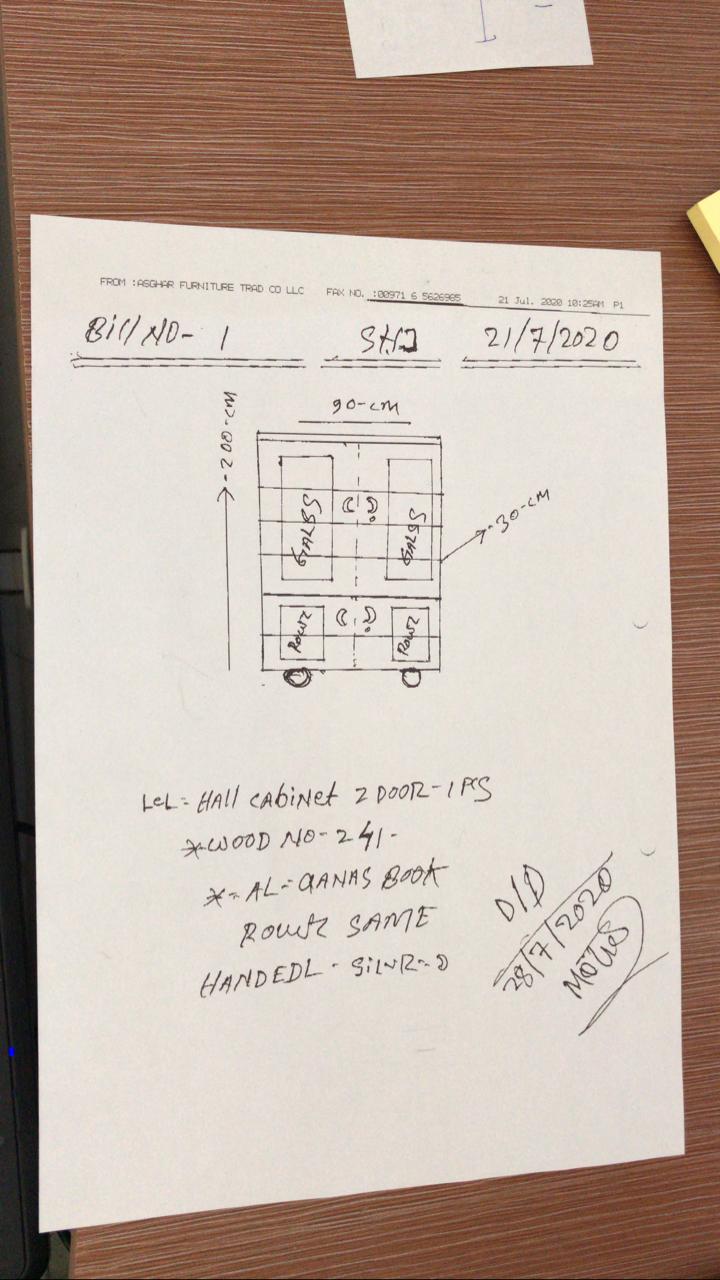 FROM :ASGHAR FURNITURE TRAD CO LLC FAX NO. :00971 6 5626985 21 Jul. 2020 10:25AM P1
Bill NO- 1 SHJ 21/7/2020
90-CM
200-CM
GALSS GALSS
30-CM
ROWZ ROWZ
LCL= HAll CABiNet 2 DOOR-1 PCS
*WOOD NO-241-
*= AL=QANAS BOOK
ROWZ SAME
HANDEDL - SiLVR=D
D/D
28/7/2020